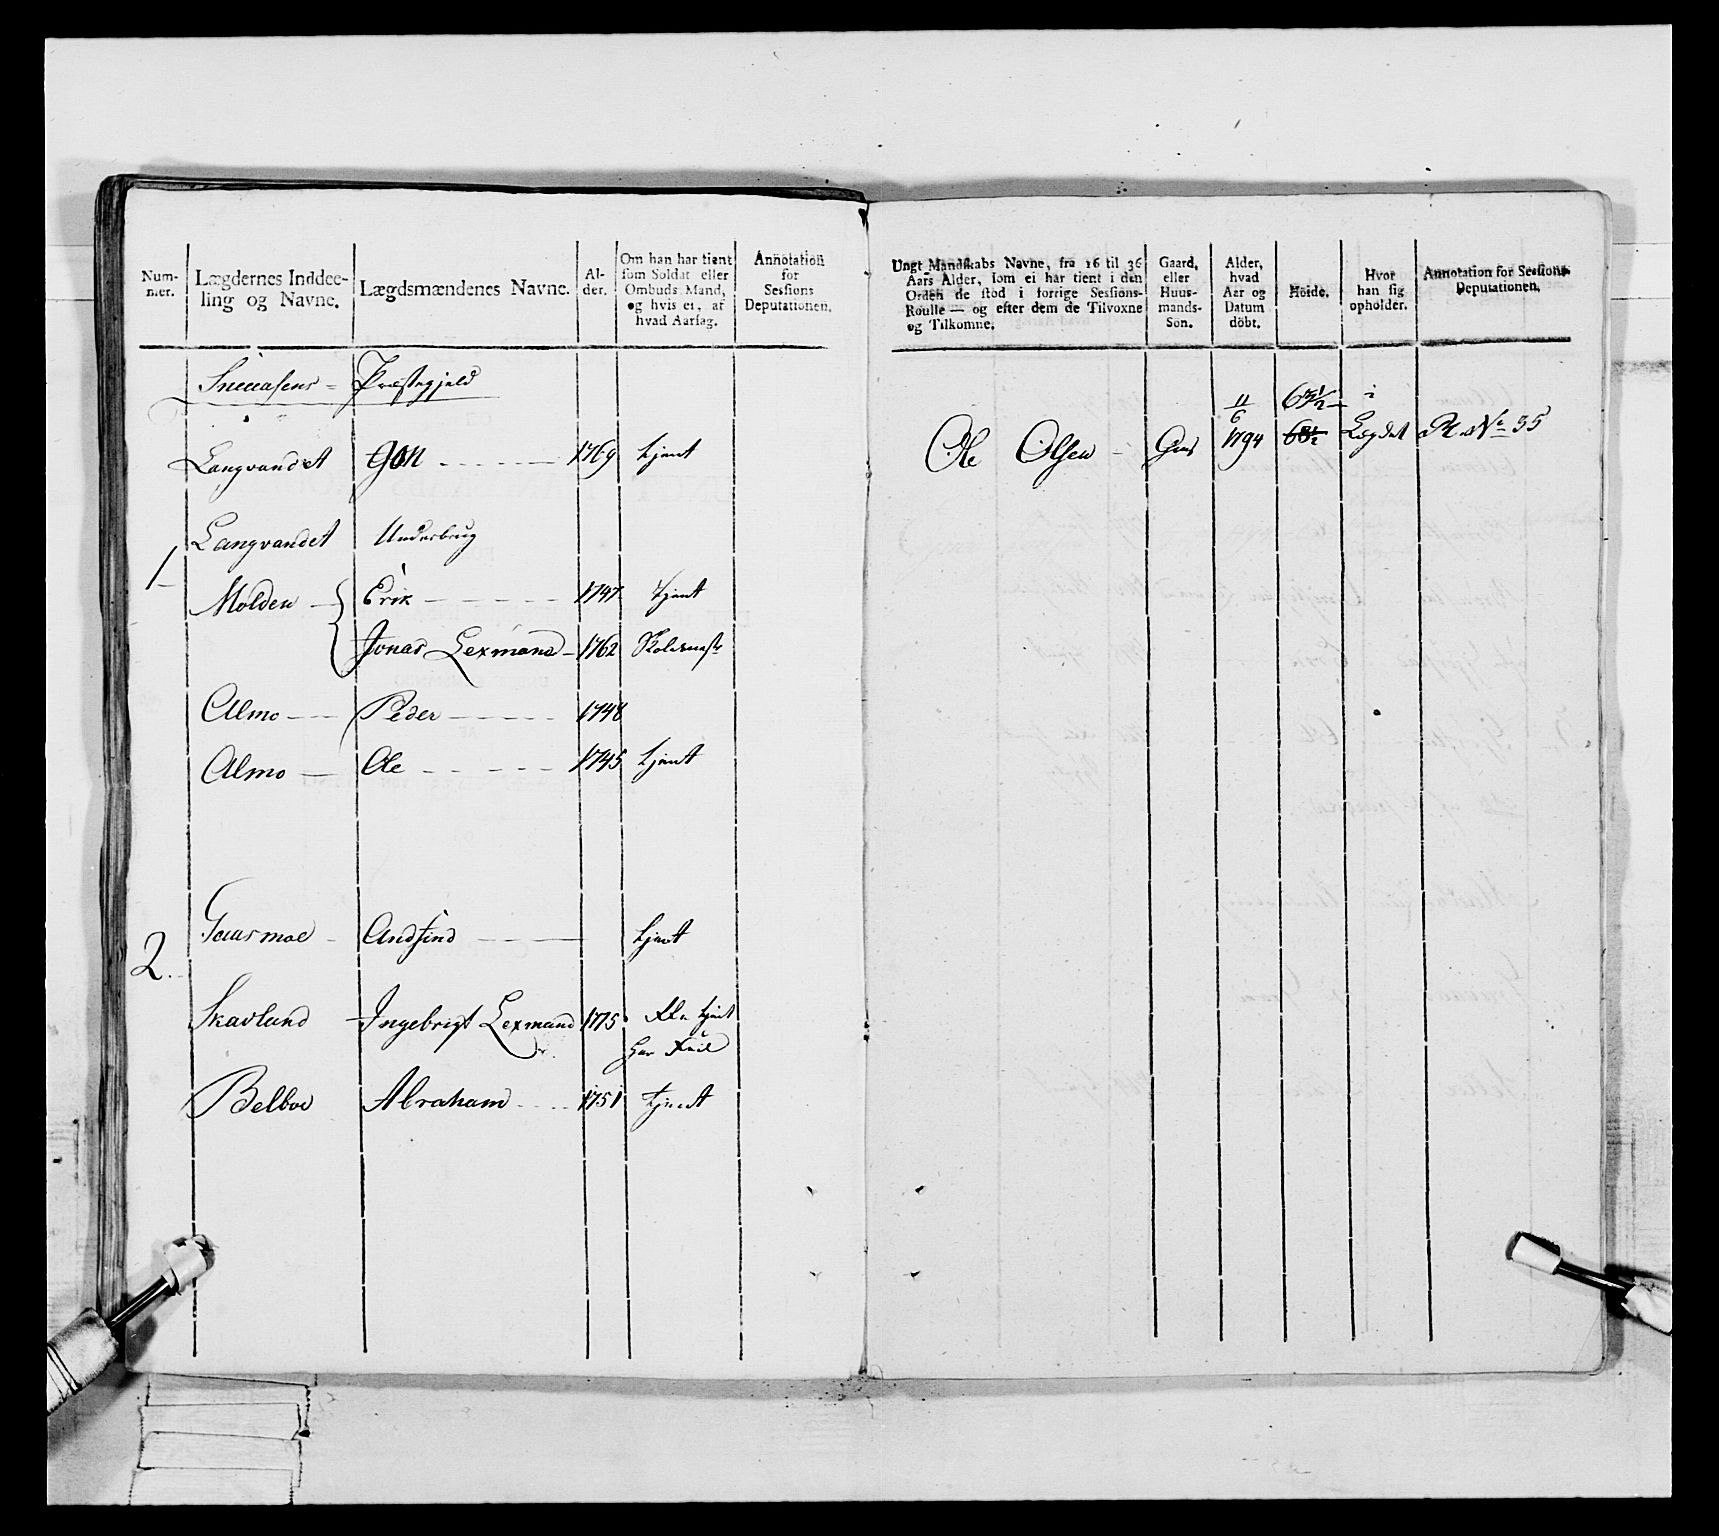 Num-
mer.
Lægdernes Inddee-
ling og Navne.
Lægdsmændenes Navne.
Al-
der.
Om han har tient
som Soldat eller
Ombuds Mand,
og hvis ei, af
hvad Aarsag.
Annotation
for
Sessions
Deputationen.
Sneaasens Præstegjeld
Langvandet Jon 1769 tjent
Langvandet Underbrug
1
Molden Erik 1747 tjent
Jonas Lexmand 1762 Skolemestr
Almo Peder 1748
Almo Ole 1745 tjent
2.
Gausmoe Andfind tjent
Skavlund Ingebrigt Lexmand 1775 tjent
har
Belboe Abraham 1751 tjent
Ungt Mandskabs Navne, fra 16 til 36
Aars Alder, som ei har tient i den
Orden de stod i forrige Sessions-
Roulle — og efter dem de Tilvoxne
og Tilkomne.
Gaard,
eller
Huus-
mands-
Sön.
Alder,
hvad
Aar og
Datum
döbt.
Höide.
Hvor
han sig
opholder.
Annotation for Sessions
Deputationen.
11/6 63½ i
Ole Olsen 1794 Lægdet R. No 35